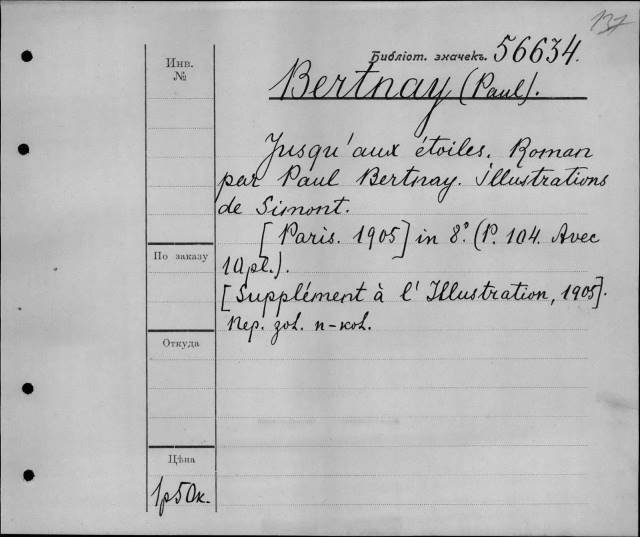 137
Инв.
№
Библіот. значекъ. 56634.
Bertnay (Paul).
Jusqu'aux étoiles. Roman
par Paul Bertnay. illustrations
de Simont.
[Paris. 1905] in 8º (P. 104. Avec
По заказу
10pl.).
[Supplément à l'Illustration, 1905].
Пер. зол. п-кол.
Откуда
Цѣна
1р50к.